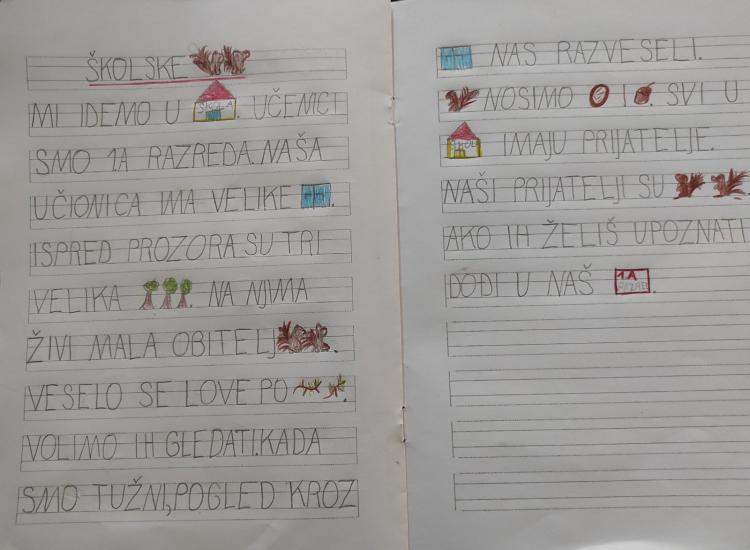 ŠKOLSKE
MI IDEMO U ŠKOLA. UČENICI
SMO 1A RAZREDA. NAŠA
UČIONICA IMA VELIKE .
ISPRED PROZORA SU TRI
VELIKA . NA NJIMA
ŽIVI MALA OBITELJ .
VESELO SE LOVE PO .
VOLIMO IH GLEDATI. KADA
SMO TUŽNI, POGLED KROZ
NAS RAZVESELI.
NOSIMO I . SVI U
ŠKOLI IMAJU PRIJATELJE.
NAŠI PRIJATELJI SU
AKO IH ŽELIŠ UPOZNATI
DOĐI U NAŠ 1.A .